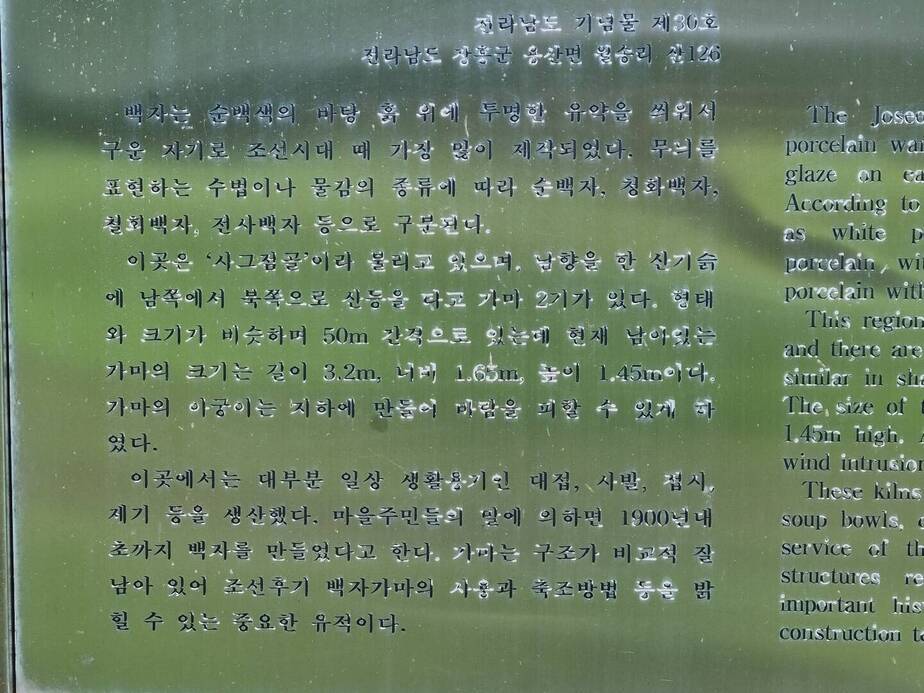 전라남도 기념물 제30호
전라남도 장흥군 용산면 월송리 산126
백자는 순백색의 바탕 흙 위에 투명한 유약을 씌워서
구운 자기로 조선시대 때 가장 많이 제작되었다. 무늬를
표현하는 수법이나 물감의 종류에 따라 순백자, 청화백자,
철회백자, 전사백자 등으로 구분된다.
이곳은 ‘사그점골’이라 불리고 있으며, 남향을 한 산기슭
에 남쪽에서 북쪽으로 산등을 타고 가마 2기가 있다. 형태
와 크기가 비슷하며 50m 간격으로 있는데 현재 남아있는
가마의 크기는 길이 3.2m, 너비 1.65m, 높이 1.45m이다.
가마의 아궁이는 지하에 만들어 바람을 피할 수 있게 하
였다.
이곳에서는 대부분 일상 생활용기인 대접, 사발, 접시,
제기 등을 생산했다. 마을주민들의 말에 의하면 1900년대
초까지 백자를 만들었다고 한다. 가마는 구조가 비교적 잘
남아 있어 조선후기 백자가마의 사용과 축조방법 등을 밝
힐 수 있는 중요한 유적이다.
The Joseo
porcelain war
glaze on ea
According to
as white p
porcelain, wi
porcelain with
This region
and there are
similar in sh
The size of t
1.45m high. A
wind intrusion
These kiln
soup bowls, c
service of th
structures re
important his
construction te